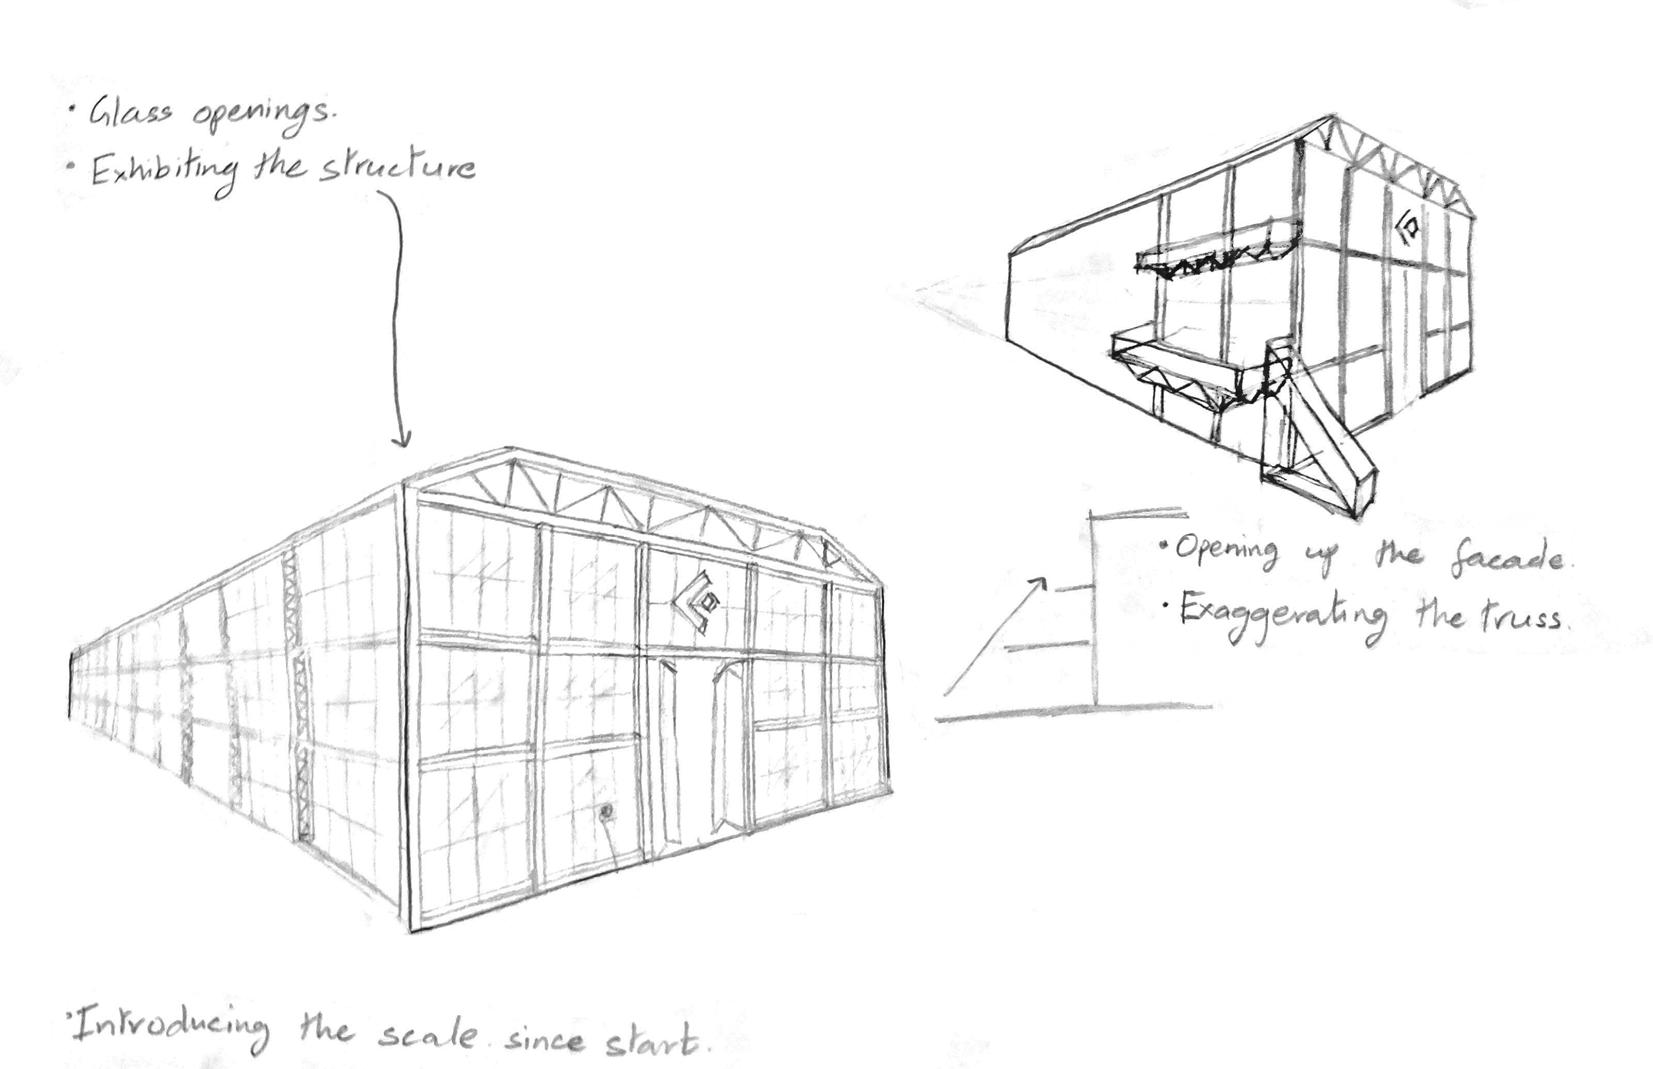 • Glass openings.
• Exhibiting the structure
• Opening up the facade.
• Exaggerating the truss.
• Introducing the scale since start.